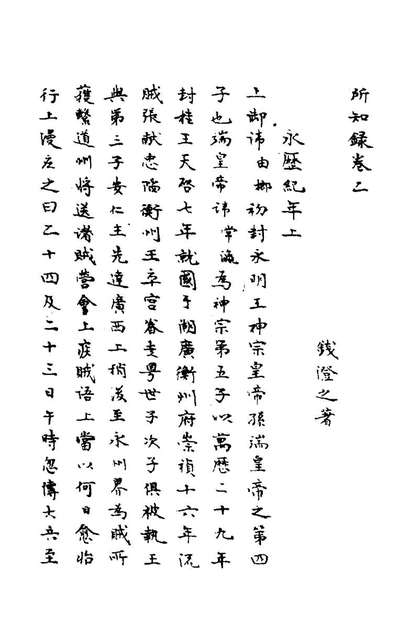 所知録卷二
錢澄之著
永歷紀年上
上御諱由榔初封永明王神宗皇帝孫端皇帝之第四
子也端皇帝諱常瀛為神宗第五子以萬歷二十九年
封桂王天啓七年就國于湖廣衡州府崇禎十六年流
賊張献忠陷衡州王率宮眷走粤世子次子俱被執王
與第三子安仁王先達廣西上稍後至永州界為賊所
獲繫道州将送诸賊營會上疾賊語上當以何日愈怡
行上漫應之曰乙十四及二十三日午時忽傳大兵至